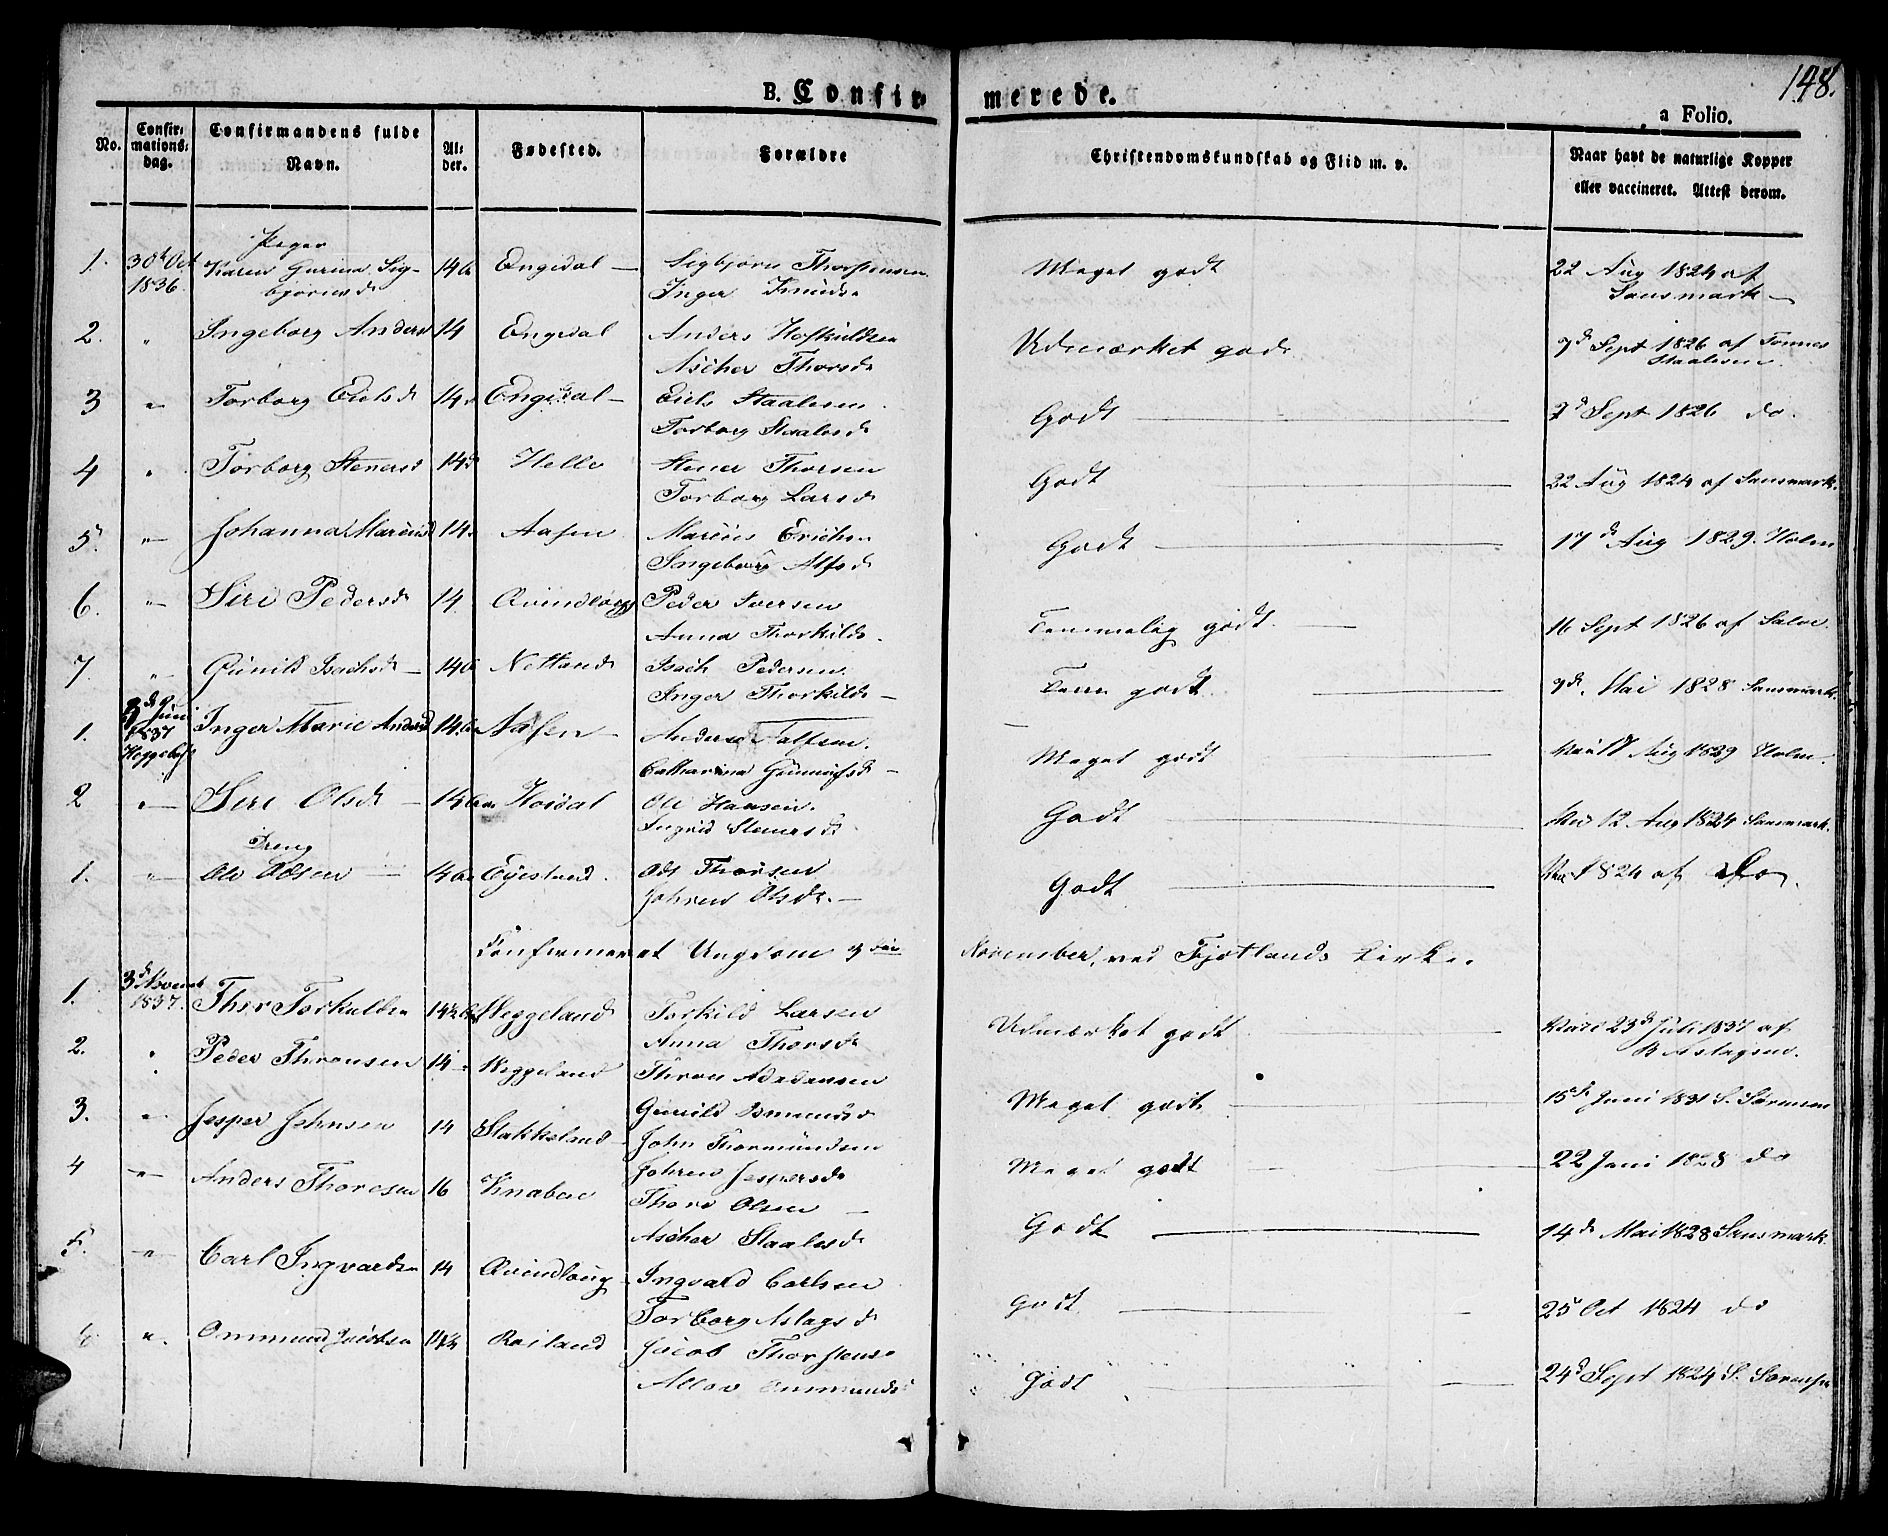 148.
B. Confirmerede.
a Folio.
No.
Confirmationsdag.
Confirmandens fulde Navn.
Alder.
Fødested.
Forældre
Christendomskundskab og Flid m. v.
Naar havt de naturlige Kopper eller vaccineret. Attest derom.
Piger
1. 30t Oct 1836 Karen Gurine Sigbjørnsd Engedal — Sigbjørn Thorstensen Inger Knudsd Meget godt 22 Aug 1824 af Sansmark —
2. " Ingeborg Andersd 14 Engedal Anders Hofkuldsen Ascher Thorsd Udmærket godt 7d Sept 1826 af Tønnes Staalesen.
3 " Torborg Eielsd 14 Engedal — Eiels Staalesen Torborg Staalesd Godt — 7d Sept 1826 do.
4 " Torborg Stenersd 14 Helle Stener Thorsen Torborg Larsd Godt — 22 Aug 1824 af Sansmark.
5. " Johanna Mareusd 14 Aasen Mareus Erichsen Ingeborg Alfsd Godt — 17d Aug 1829. Holm
6. " Siri Pedersd 14 Qvindlaug Peder Iversen Anna Thorkilds. Temmelig godt. — 16 Sept 1826 af Salve.
7. " Gunild Isachsd — Netland Isach Pedersen. Inger Thorkilds — godt. — 9d. Mai 1828 Sansmark
1. Juni 1837 Inger Marie Andersd Aasen — Anders Catharina — Meget godt Aug 1829 Holm.
2 " — Siri Olsd — Ole Hansen. Ingrid Stenersd Godt — 12. Aug 1824 Sansmark.
Dreng
1. " Ole Odsen — Eyestad. Ods Thorsen Johren Olsd. — Godt — 1824 af Do.
Confirmeret Ungdom 3die November, ved Fjotlands Kirke.
1. 3d Novemb 1837. Thor Torkildsen Heggeland Torkild Larsen Anna Thorsd Udmærket godt — 23d Juli 1837 af Aslagsen.
2. " Peder Thronsen 14 — Heggeland Thron Adadensen Gunild Omundsd Meget godt — 15d Juni 1831 S. Sørensen
3. " Jesper Johnsen 14 Stakkeland John Thormundsen Johren Jespersd Meget godt — 22 Juni 1828 do
4 — " — Anders Thoresen 16 Knaben Thore Olsen — Ascher Staalesd Godt — 14d Mai 1828 Sansmark.
5. — " — Carl Ingvardsen 14 Qvindlaug — Ingvard Carlsen Torborg Aslagsd Godt — 25 Oct 1824 do
6 ". Ommund Jacobsen Roiland Jacob Thorstens. Ommunds. Godt — 24d Sept 1824 S. Sørensen